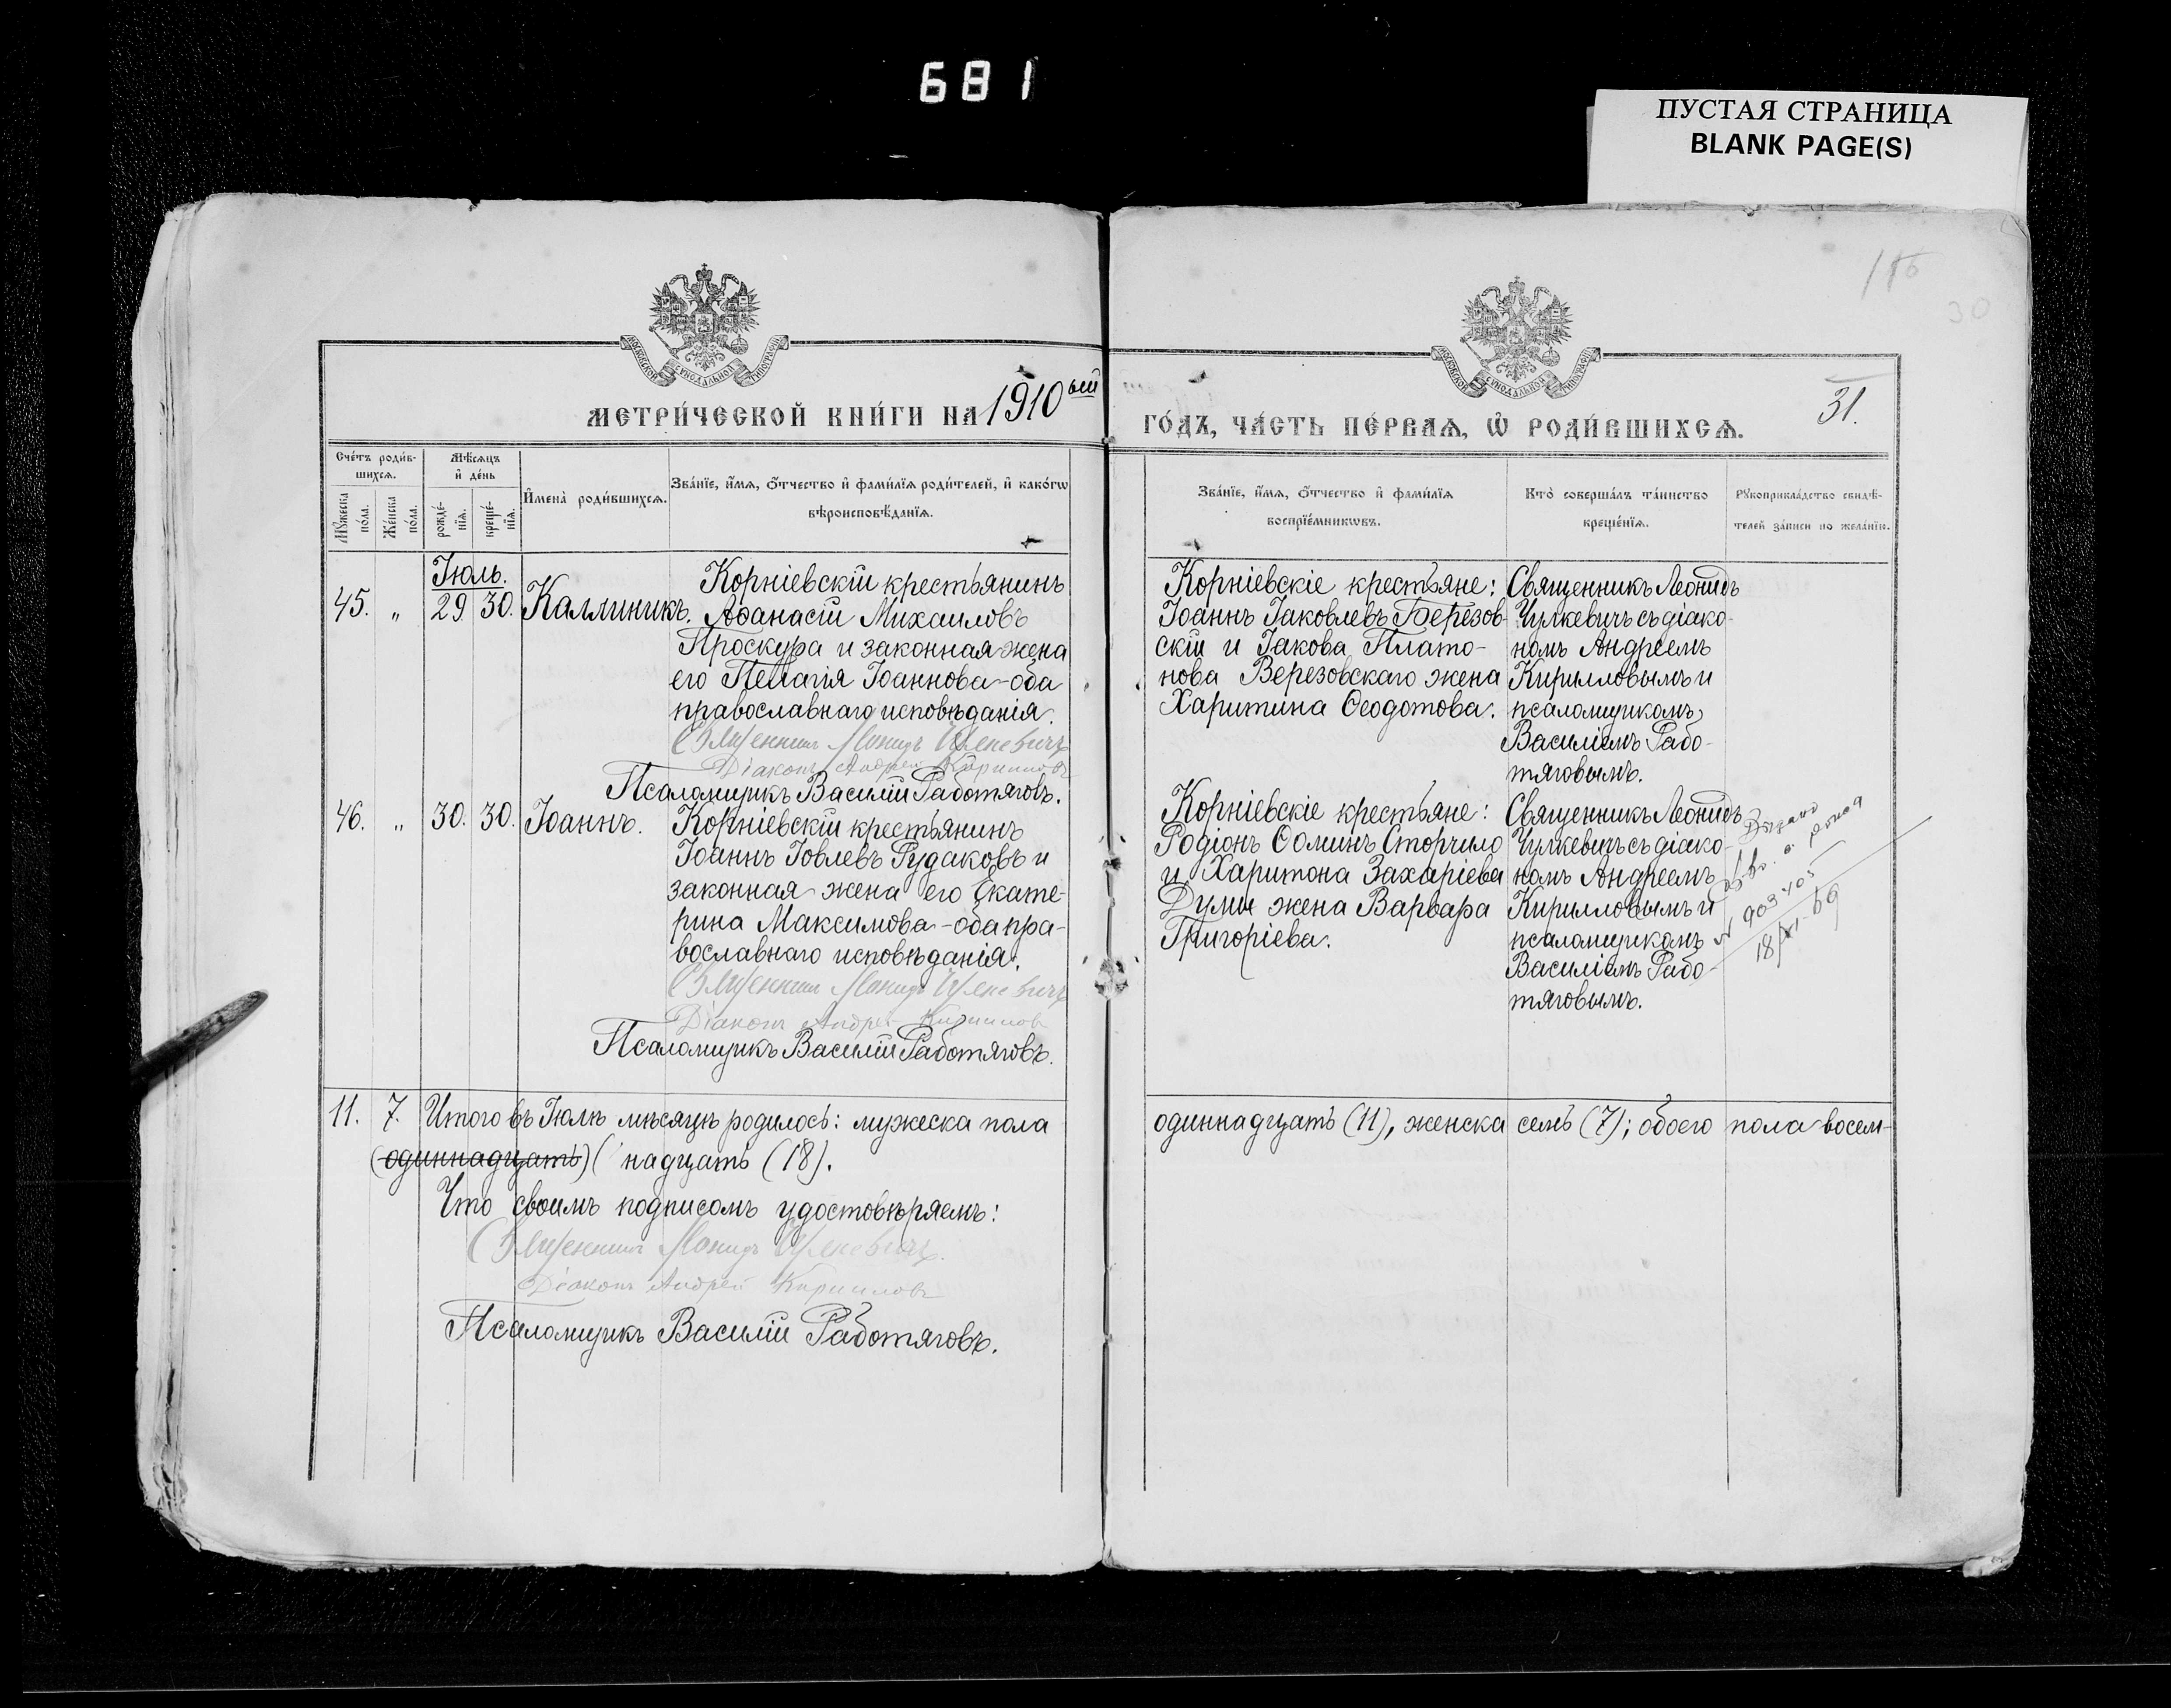 681
ПУСТАЯ СТРАНИЦА
BLANK PAGE(S)
30
МЕТРИ́ЧЕСКОЙ КНИ́ГИ НА 1910ый
ГО́ДЪ, ЧА́СТЬ ПЕ́РВАѦ, Ѡ҆ РОДИ́ВШИХСѦ.
31.
Сче́тъ роди́в-
шихсѧ.
Мꙋ́жеска по́ла.
Же́нска по́ла.
Мѣ́сѧцъ
и҆ де́нь
рожде́-
нїѧ.
креще́-
нїѧ.
И҆мена̀ роди́вшихсѧ.
Зва́нїе, и҆́мѧ, ѻ҆́тчество и҆ фами́лїѧ роди́телей, и҆ како́гѡ
вѣроисповѣ́данїѧ.
Зва́нїе, и҆́мѧ, ѻ҆́тчество и҆ фами́лїѧ
воспрїе́мникѡвъ.
Кто̀ соверша́лъ та́инство
креще́нїѧ.
Рꙋкоприкла́дство свидѣ́-
телей за́писи по жела́нїю.
Іюль.
45. „ 29. 30. Каллиникъ.
Корніевскій крестьянинъ
Аѳанасій Михаиловъ
Проскура и законная жена
его Пелагія Іоаннова - оба
православнаго исповѣданія.
Священникъ Леонидъ Чулкевичъ
Діаконъ Андрей Кирилловъ
Псаломщикъ Василій Работяговъ.
Корніевскіе крестьяне:
Іоаннъ Іаковлевъ Березов-
скій и Іакова Плато-
нова Березовскаго жена
Харитина Ѳеодотова.
Священникъ Леонидъ
Чулкевичъ съ діако-
номъ Андреемъ
Кирилловымъ и
псаломщикомъ
Василіемъ Рабо-
тяговымъ.
46. „ 30. 30. Іоаннъ.
Корніевскій крестьянинъ
Іоаннъ Іовлевъ Рудаковъ и
законная жена его Екате-
рина Максимова - оба пра-
вославнаго исповѣданія.
Священникъ Леонидъ Чулкевичъ
Діаконъ Андрей Кирилловъ
Псаломщикъ Василій Работяговъ.
Корніевскіе крестьяне:
Родіонъ Ѳоминъ Сторчило
и Харитона Захаріева
Думы жена Варвара
Григоріева.
Священникъ Леонидъ
Чулкевичъ съ діако-
номъ Андреемъ
Кирилловымъ и
псаломщикомъ
Василіемъ Рабо-
тяговымъ.
11. 7. Итого въ Іюлѣ мѣсяцѣ родилось: мужеска пола
одиннадцать (11), женска семь (7); обоего пола восем-
(одиннадцать) ( надцать (18).
Что своимъ подписомъ удостовѣряемъ:
Священникъ Леонидъ Чулкевичъ.
Діаконъ Андрей Кирилловъ
Псаломщикъ Василій Работяговъ.